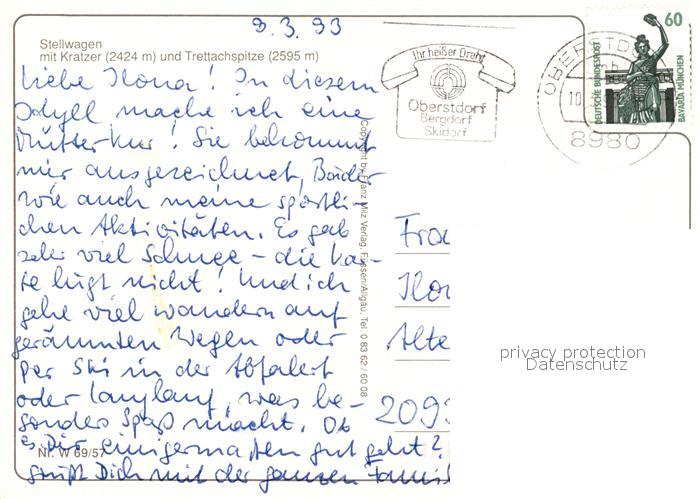 9.3.93
Stellwagen
mit Kratzer (2424 m) und Trettachspitze (2595 m)
Liebe Ilona! In diesem
Idyll mache ich eine
Mütterkur! Sie bekommt
mir ausgezeichnet, Bäder
wie auch meine sportli-
chen Aktivitäten. Es gab
sehr viel Schnee - die Kar-
te lügt nicht! Und ich
gehe viel wandern auf
geräumten Wegen oder
per Ski in der Abfahrt
oder Langlauf, was be-
sonders Spaß macht. Ob
es Dir einigermaßen gut geht?
Grüßt Dich mit der ganzen Famil
Nr. W 69/57
Copyright by Franz Milz Verlag, Füssen/Allgäu, Tel. 0 83 62 / 60 08
Ihr heißer Draht
Oberstdorf
Bergdorf
Skidorf
OBERSTDO
10.
8980
60
DEUTSCHE BUNDESPOST
BAVARIA MÜNCHEN
Frau
Ilo
Alte
209
privacy protection
Datenschutz